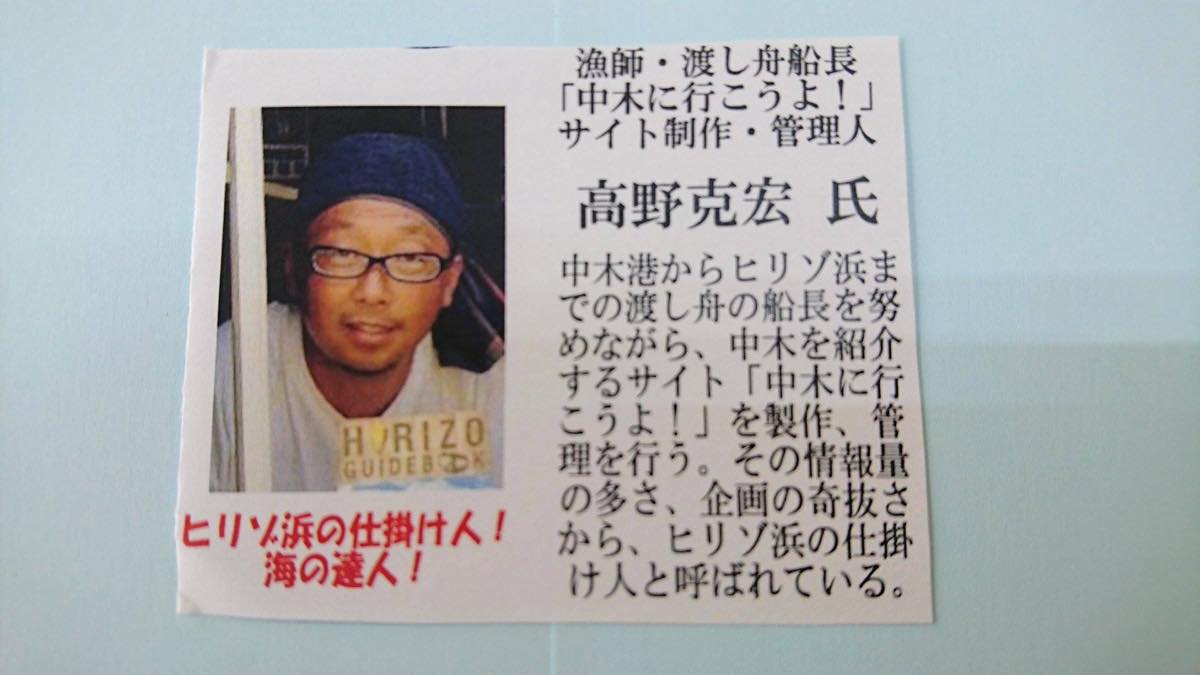 漁師・渡し舟船長
「中木に行こうよ！」
サイト制作・管理人
高野克宏 氏
中木港からヒリゾ浜ま
での渡し舟の船長を努
めながら、中木を紹介
するサイト「中木に行
こうよ！」を製作、管
理を行う。その情報量
の多さ、企画の奇抜さ
から、ヒリゾ浜の仕掛
け人と呼ばれている。
HIRIZO
GUIDEBOOK
ヒリゾ浜の仕掛け人！
海の達人！